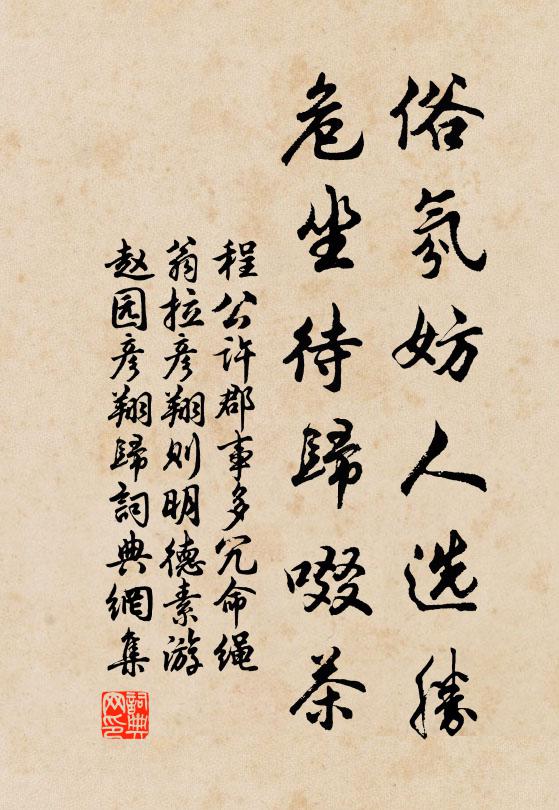 俗氛妨人选勝
危坐待歸啜茶
程公许郡事多冗命绳
翁拉彦翔则明德素游
赵园彦翔歸詞典網集
詞典
网印